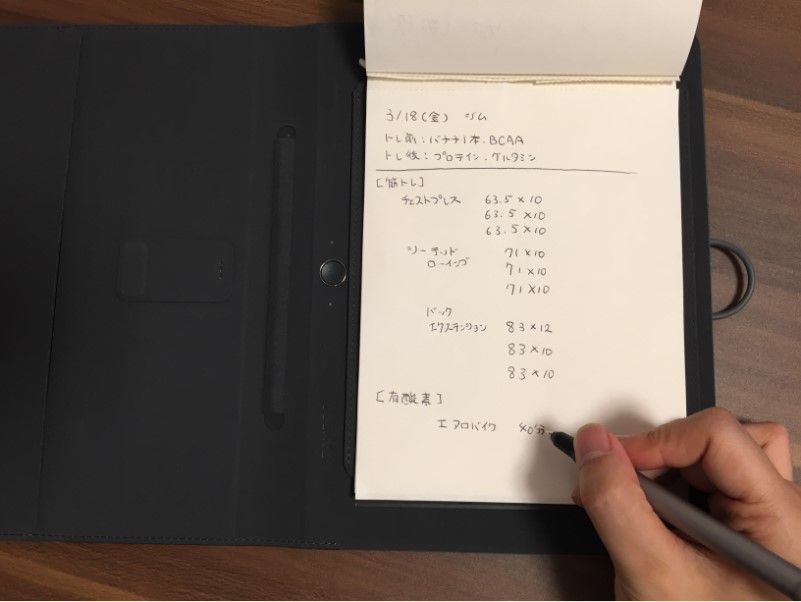 3/18(金) ジム
トレ前:バナナ1本.BCAA
トレ後:プロテイン.グルタミン
[筋トレ]
チェストプレス 63.5×10
63.5×10
63.5×10
シーテッド 71×10
ローイング 71×10
71×10
バック
エクステンション 83×12
83×10
83×10
[有酸素]
エアロバイク 40分